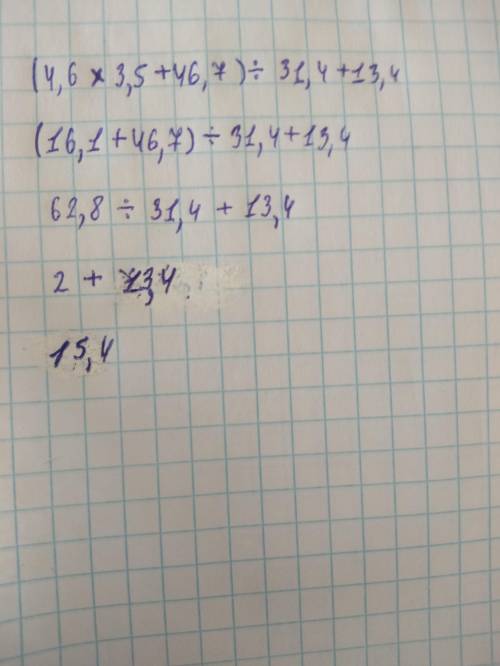 (4,6 × 3,5 + 46,7) ÷ 31,4 + 13,4
(16,1 + 46,7) ÷ 31,4 + 13,4
62,8 ÷ 31,4 + 13,4
2 + 13,4
15,4